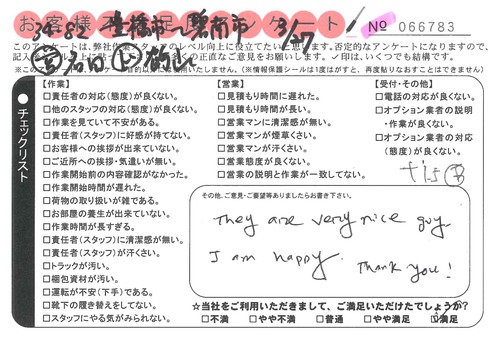 お客様不満足度アンケート
No 066783
3482 豊橋市〜碧南市 3/27
このアンケートは、弊社作業スタッフのレベル向上に役立てたいと思います。否定的なアンケートになりますので、
チェックリスト
【作業】
□責任者の対応(態度)が良くない。
□他のスタッフの対応(態度)が良くない。
□作業を見ていて不安がある。
□責任者(スタッフ)に好感が持てない。
□お客様への挨拶が出来ていない。
□ご近所への挨拶・気遣いが無い。
□作業開始前の内容確認がなかった。
□作業開始時間が遅れた。
□荷物の取り扱いが雑である。
□お部屋の養生が出来ていない。
□作業時間が長すぎる。
□責任者(スタッフ)に清潔感が無い。
□責任者(スタッフ)が汗くさい。
□トラックが汚い。
□梱包資材が汚い。
□運転が不安(下手)である。
□靴下の履き替えをしてない。
□スタッフにやる気がみられない。
【営業】
□見積もり時間に遅れた。
□見積もり時間が長い。
□営業マンに清潔感が無い。
□営業マンが煙草くさい。
□営業マンが汗くさい。
□営業態度が良くない。
□営業の説明と作業が一致してない。
【受付・その他】
□電話の対応が良くない。
□オプション業者の説明
・作業が良くない。
□オプション業者の対応
(態度)が良くない。
その他、ご意見・ご要望等ありましたらお書き下さい。
They are very nice guy.
I am happy.
Thank you!
☆当社をご利用いただきまして、ご満足いただけたでしょうか?
□不満 □やや不満 □普通 □やや満足 ☑満足